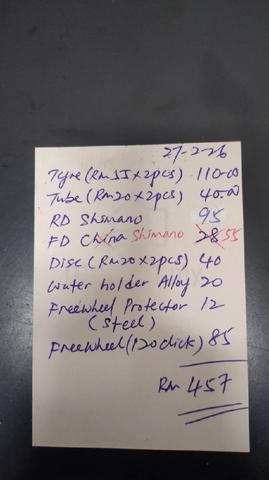 27-2-26
Tyre (Rm55 x 2pcs) 110.00
Tube (Rm20 x 2pcs) 40.00
RD Shimano 95
FD China Shimano 28 55
Disc (Rm20 x 2pcs) 40
Water holder Alloy 20
Freewheel Protector 12
(Steel)
Freewheel (120 click) 85
Rm 457